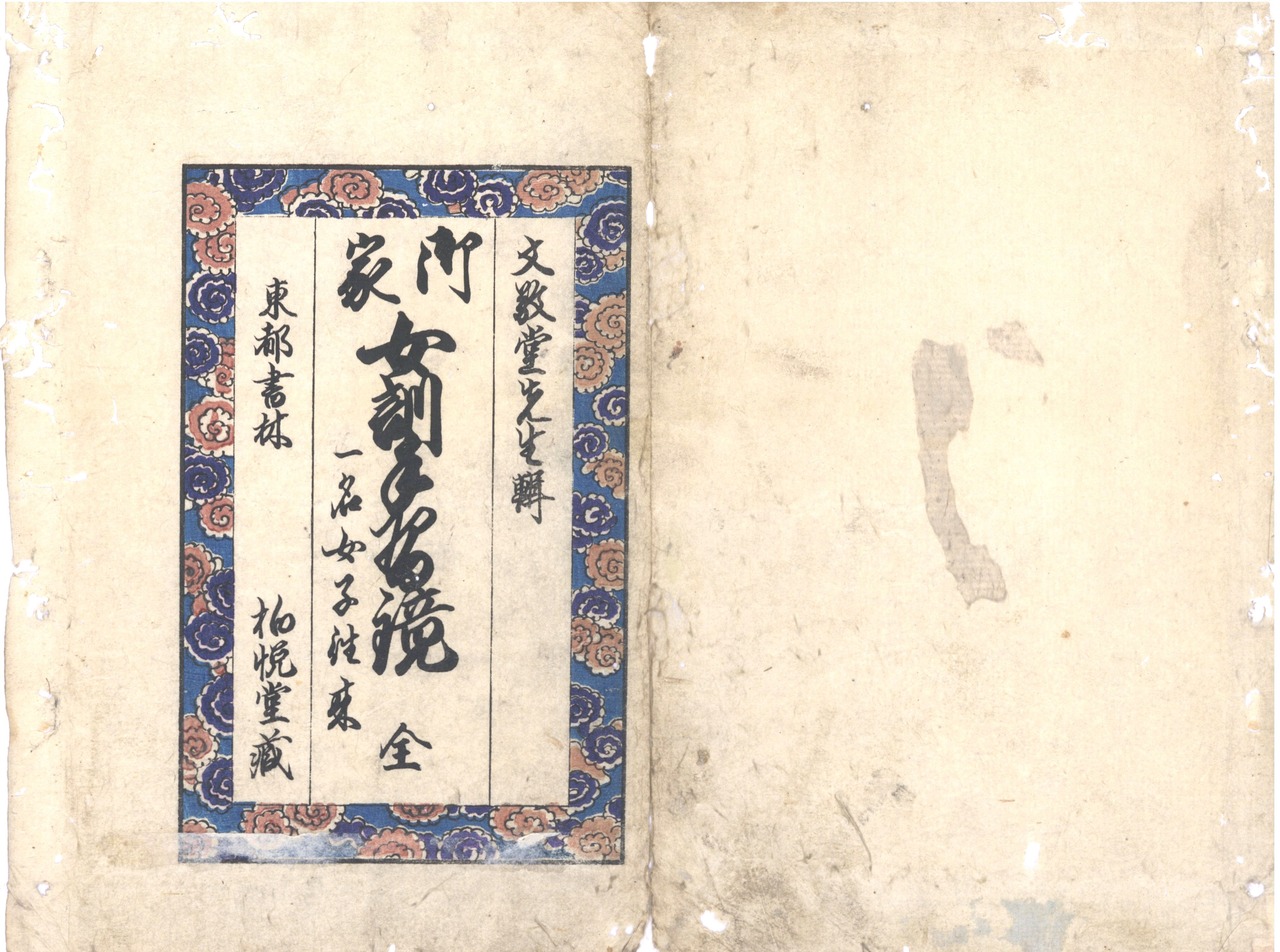 文敬堂先生輯
御家
女訓手習鏡 全
一名女子往来
東都書林 柏悦堂蔵